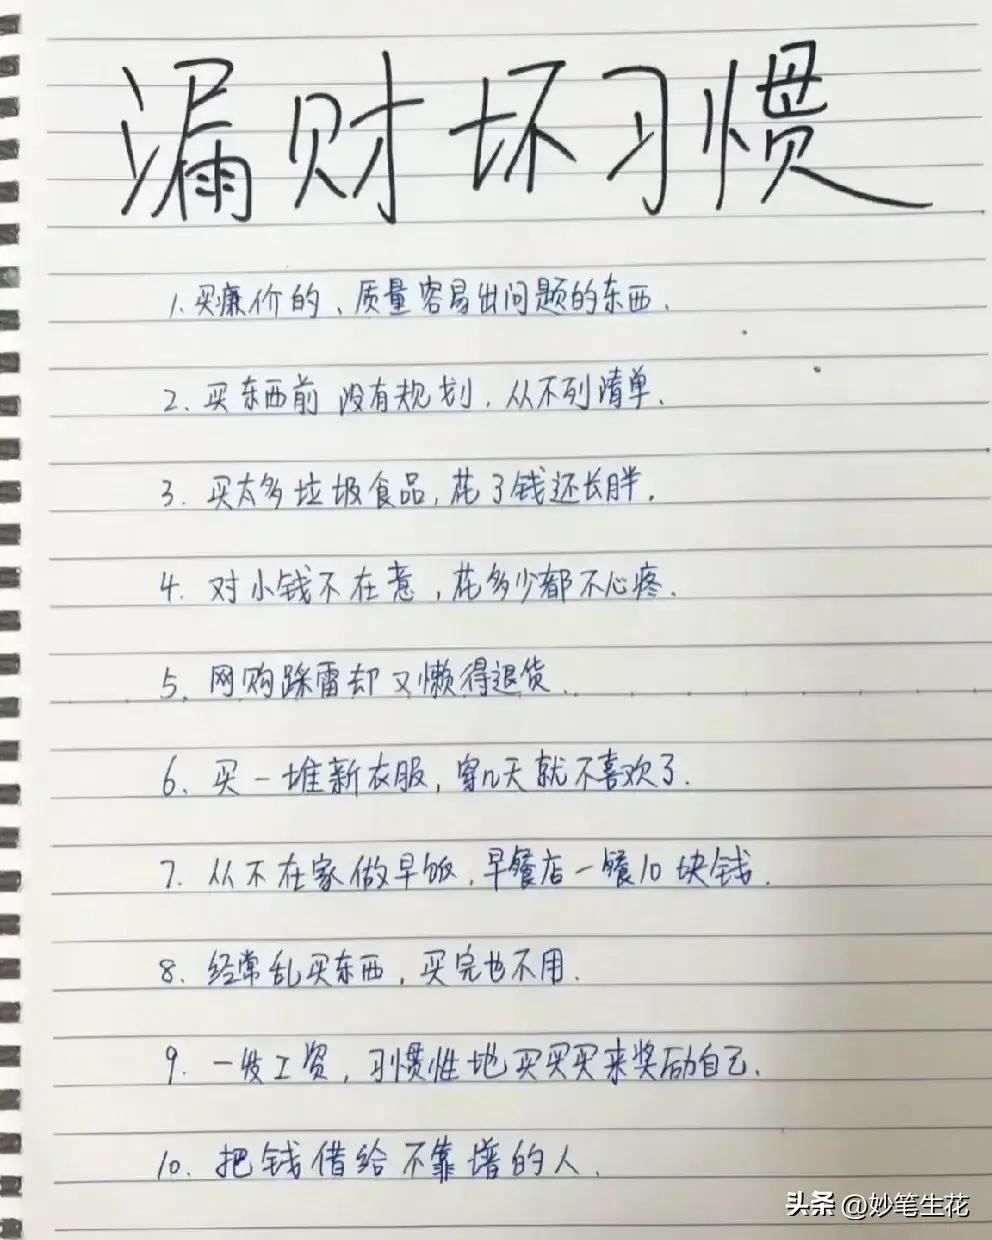 漏财坏习惯
1.买廉价的、质量容易出问题的东西.
2.买东西前没有规划.从不列清单.
3.买太多垃圾食品,花了钱还长胖.
4.对小钱不在意,花多少都不心疼.
5.网购踩雷却又懒得退货.
6.买一堆新衣服,穿几天就不喜欢了.
7.从不在家做早饭,早餐店一餐10块钱.
8.经常乱买东西,买完也不用.
9.一发工资,习惯性地买买买来奖励自己.
10.把钱借给不靠谱的人.
头条 @妙笔生花